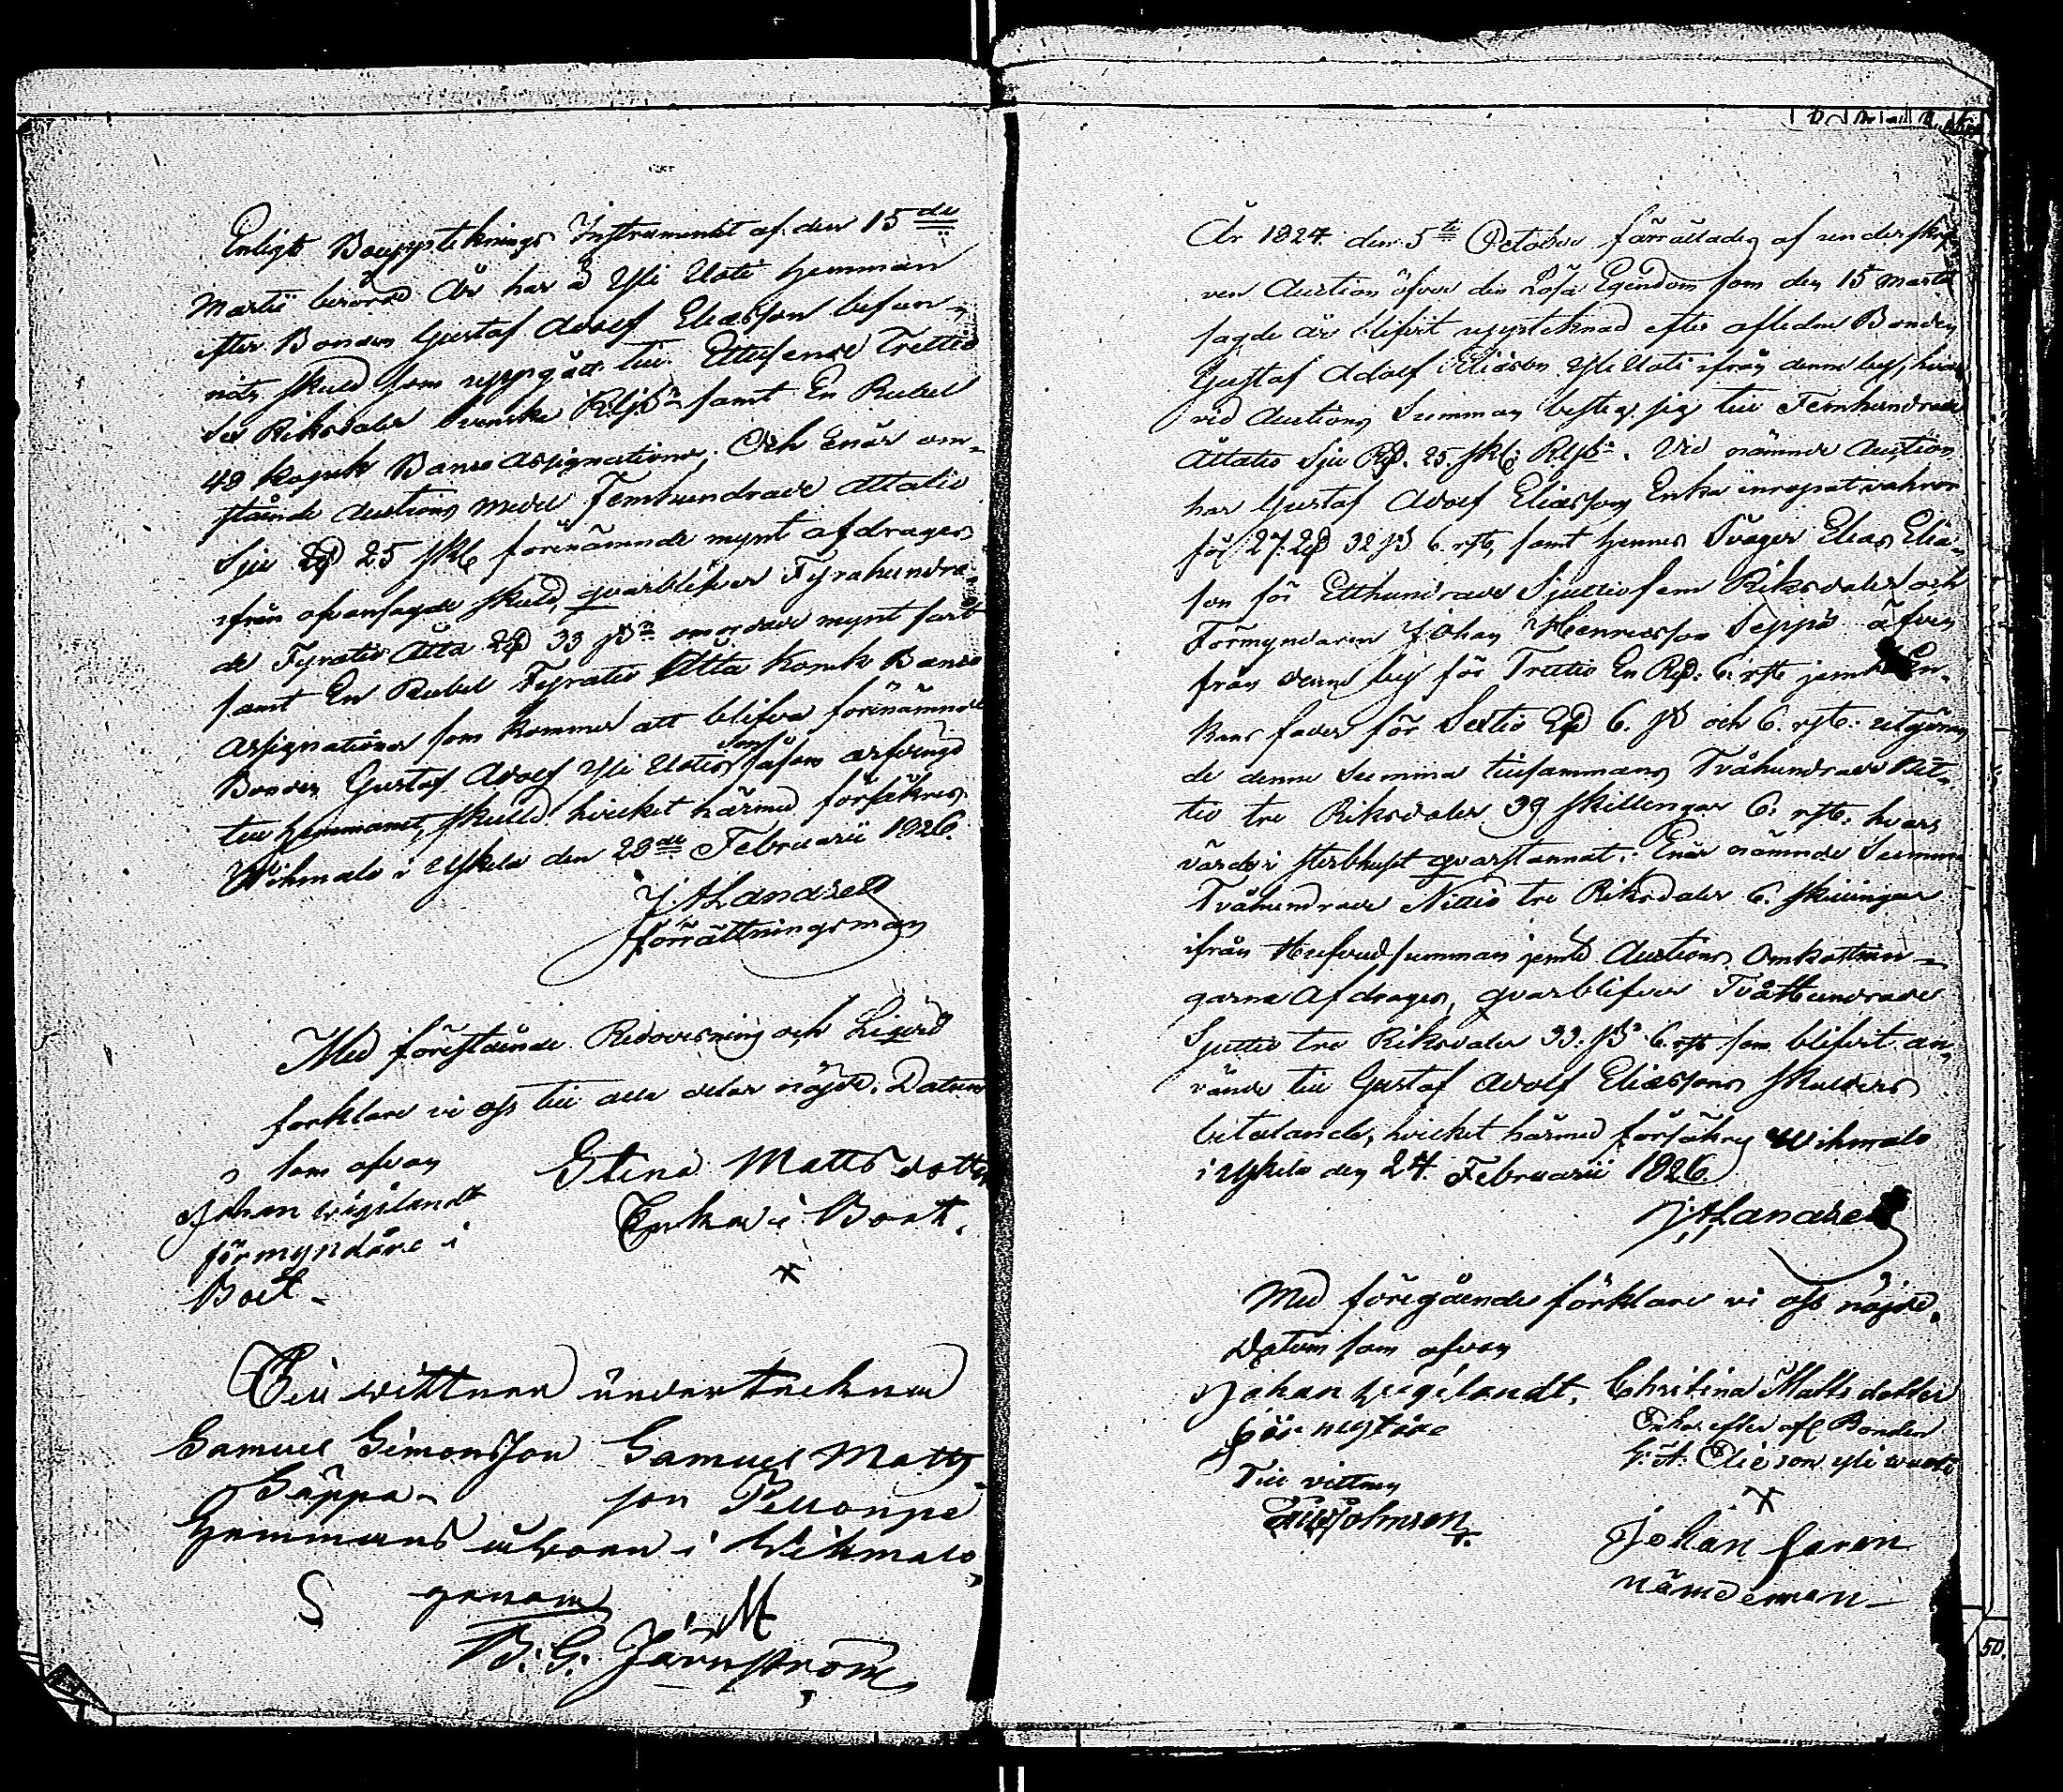 Enligt Bouppteknings Instrumentet af den 15de
Martii berörde År har å Yli Uoti hemman
efter Bonden Gustaf Adolf Eliasson befun-
nits skuld som uppgått till Ettusende Trettio
Sex Riksdaler Svenska Rgs samt En Rubel
48 Kopek Banco Assignationer. Och Enär om-
stående Auctions medel Femhundrade Åttatio
Sju Rd 25 skl förenämnde mynt afdrages
ifrån ofvansagde skuld, qvarblifver Fyrahundra-
de Fyratio Åtta Rd 33 s mynt
samt En Rubel Fyratio Åtta Kopek Banco
Assignationer som kommer att blifva förenämnde
Bonden Gustaf Adolf Yli Uotis såsom arfvinge
till hemmanet, skuld hvilket härmed försäkras.
Wihmalo i Uskela den 28de Februarii 1826.
förrättningsman
Med förestående Redovisning och Liqvid
förklare vi oss till alla delar nöjde. Datum
som ofvan
Stina Matts dotter
Johan
Enka i Boet.
förmyndare i
Boet-
x
Till wittnen undertecknad
Samuel Simonsson Samuel Matts
Säppä- son
Hemmans åboer i Wihmalo
genom
S M
B: G: Järnström
År 1824 den 5te October förrättades af underskrif-
ven Auction öfver den Lösa Egendom som den 15 Martii
sagde år blifvit upptecknad efter afledne Bonden
Gustaf Adolf Eliasson Yli Uoti ifrån denne by, hvar-
vid Auctions Summan besteg sig till Femhundrade
Åttatio Sju Rd. 25. skl: Rgs. Vid nämnde Auction
har Gustaf Adolf Eliasson Enka inropat varor
för 27. Rd 32 s 6. rst, samt hennes Svåger Elias Elia-
son för Etthundrade Sjuttiofem Riksdaler och
Förmyndaren Johan Henricsson Seppä äfven
från denne by för Trettio En Rd: 6. rst jemte En-
kans fader för Sextio Rd 6. s och 6. rst: utgöran-
de denne Summa tillsammans Tvåhundrade Nit-
tio tre Riksdaler 39 skillingar 6: rst: hvars
värde i sterbhuset qvarstannat. Enär nämnde Summa
Tvåhundrade Nittio tre Riksdaler 6. skillingar
ifrån Hufvudsumman jemte Auctions Omkostnin-
garne Afdrages, qvarblifver Tvåhundrade
Sjuttio tre Riksdaler 33. s. 6 rst som blifvit an-
vände till Gustaf Adolf Eliassons skulders
betalande, hvilket härmed försäkras Wihmalo
i Uskela den 24. Februarii 1826.
Med föregående förklare vi oss nöjde.
Datum som ofvan
Johan Christina Matts dotter
Enka efter afl Bonden
G: A: Elieson yli wuoti
Till vittnen
x
Johan
nämdeman-
50.